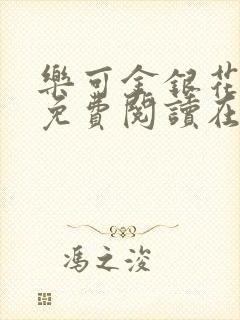 樂可金銀花
免費閱讀在
馮之浚